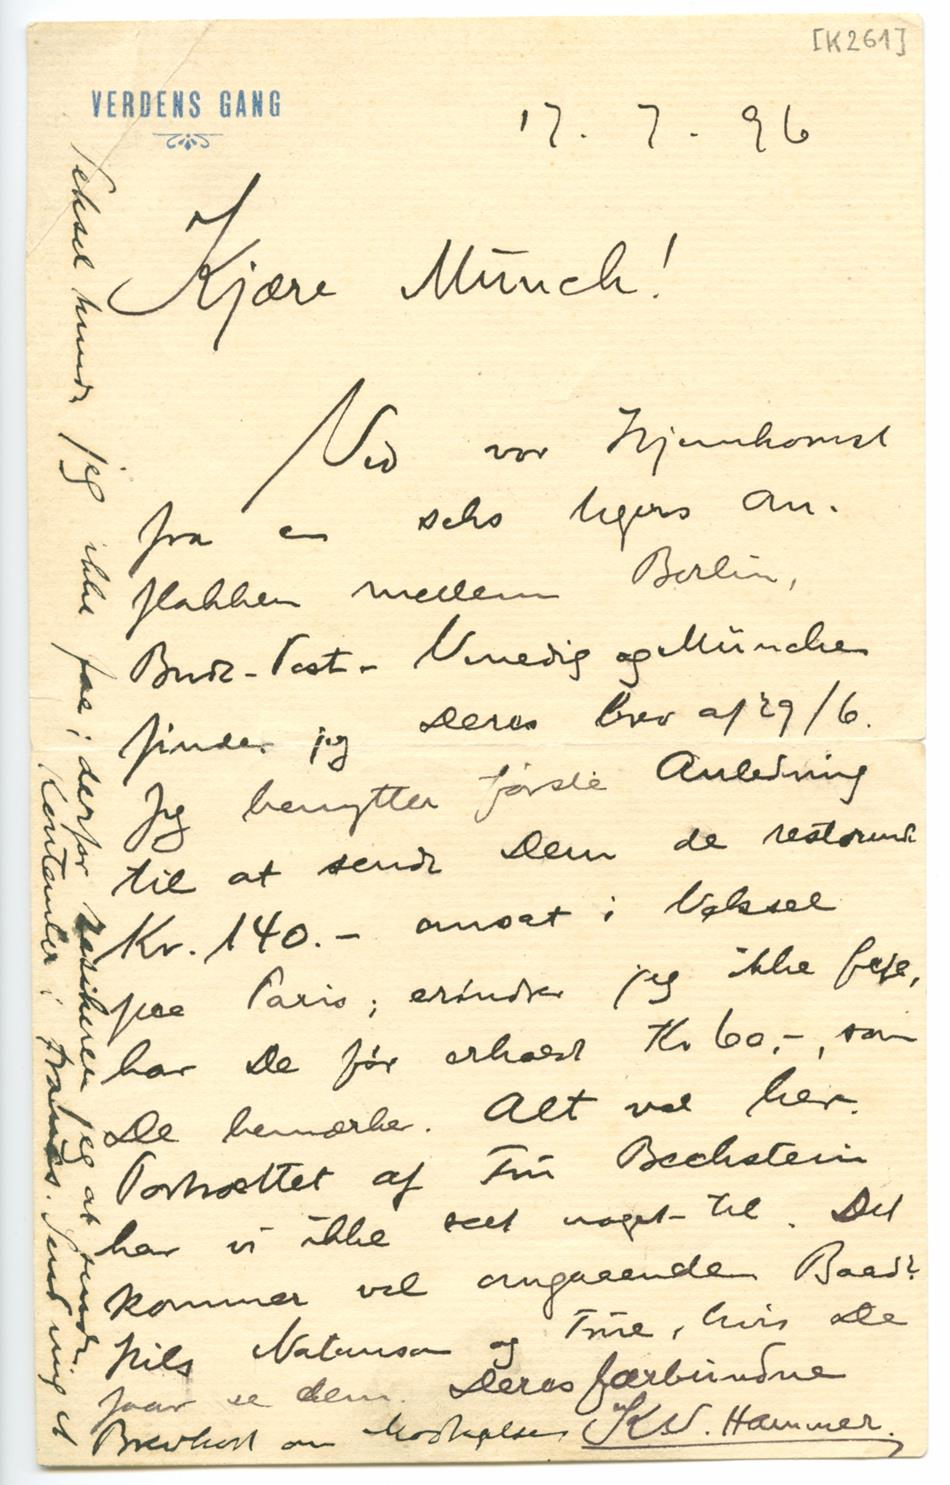 [K261]
VERDENS GANG
17. 7. 96
Kjære Münch!
Ved vor Hjemkomst
fra en seks Ugers Om-
flakken mellem Berlin,
Buda-Pest- Venedig og München
finder jeg Deres brev af 29/6.
Jeg benytter første Anledning
til at sende Dem de resterende
Kr. 140.- omsat i Veksel
paa Paris; erindrer jeg ikke feil,
har De før erholdt Kr 60,-, som
De bemærker. Alt vel her.
Portrættet af Frü Bechstein
har vi ikke seet noget til. Det
kommer vel omgaaende Baad?
Hils Natanson og Früe, hvis De
faar se dem. Deres færbündne
KV. Hammer.
Veksel kunde jeg ikke faa; derfor resikerer jeg at sende
Kontanter i francs. Send mig et
Brevkort om Modtagelsen